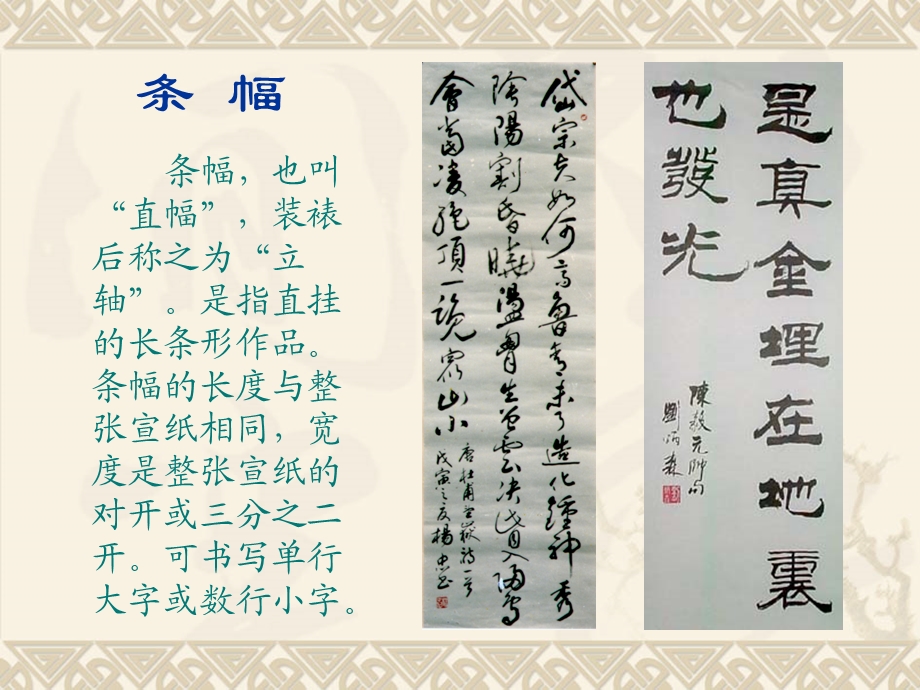 条 幅
条幅，也叫
“直幅”，装裱
后称之为“立
轴”。是指直挂
的长条形作品。
条幅的长度与整
张宣纸相同，宽
度是整张宣纸的
对开或三分之二
开。可书写单行
大字或数行小字。
岱宗夫如何齊魯青未了造化鍾神秀
陰陽割昏曉盪胸生曾云決眥入歸鳥
會當凌絕頂一覽眾山小
唐杜甫望嶽詩一首
戊寅之夏楊忠
是真金埋在地裏
也發光
陳毅元帥句
劉炳森